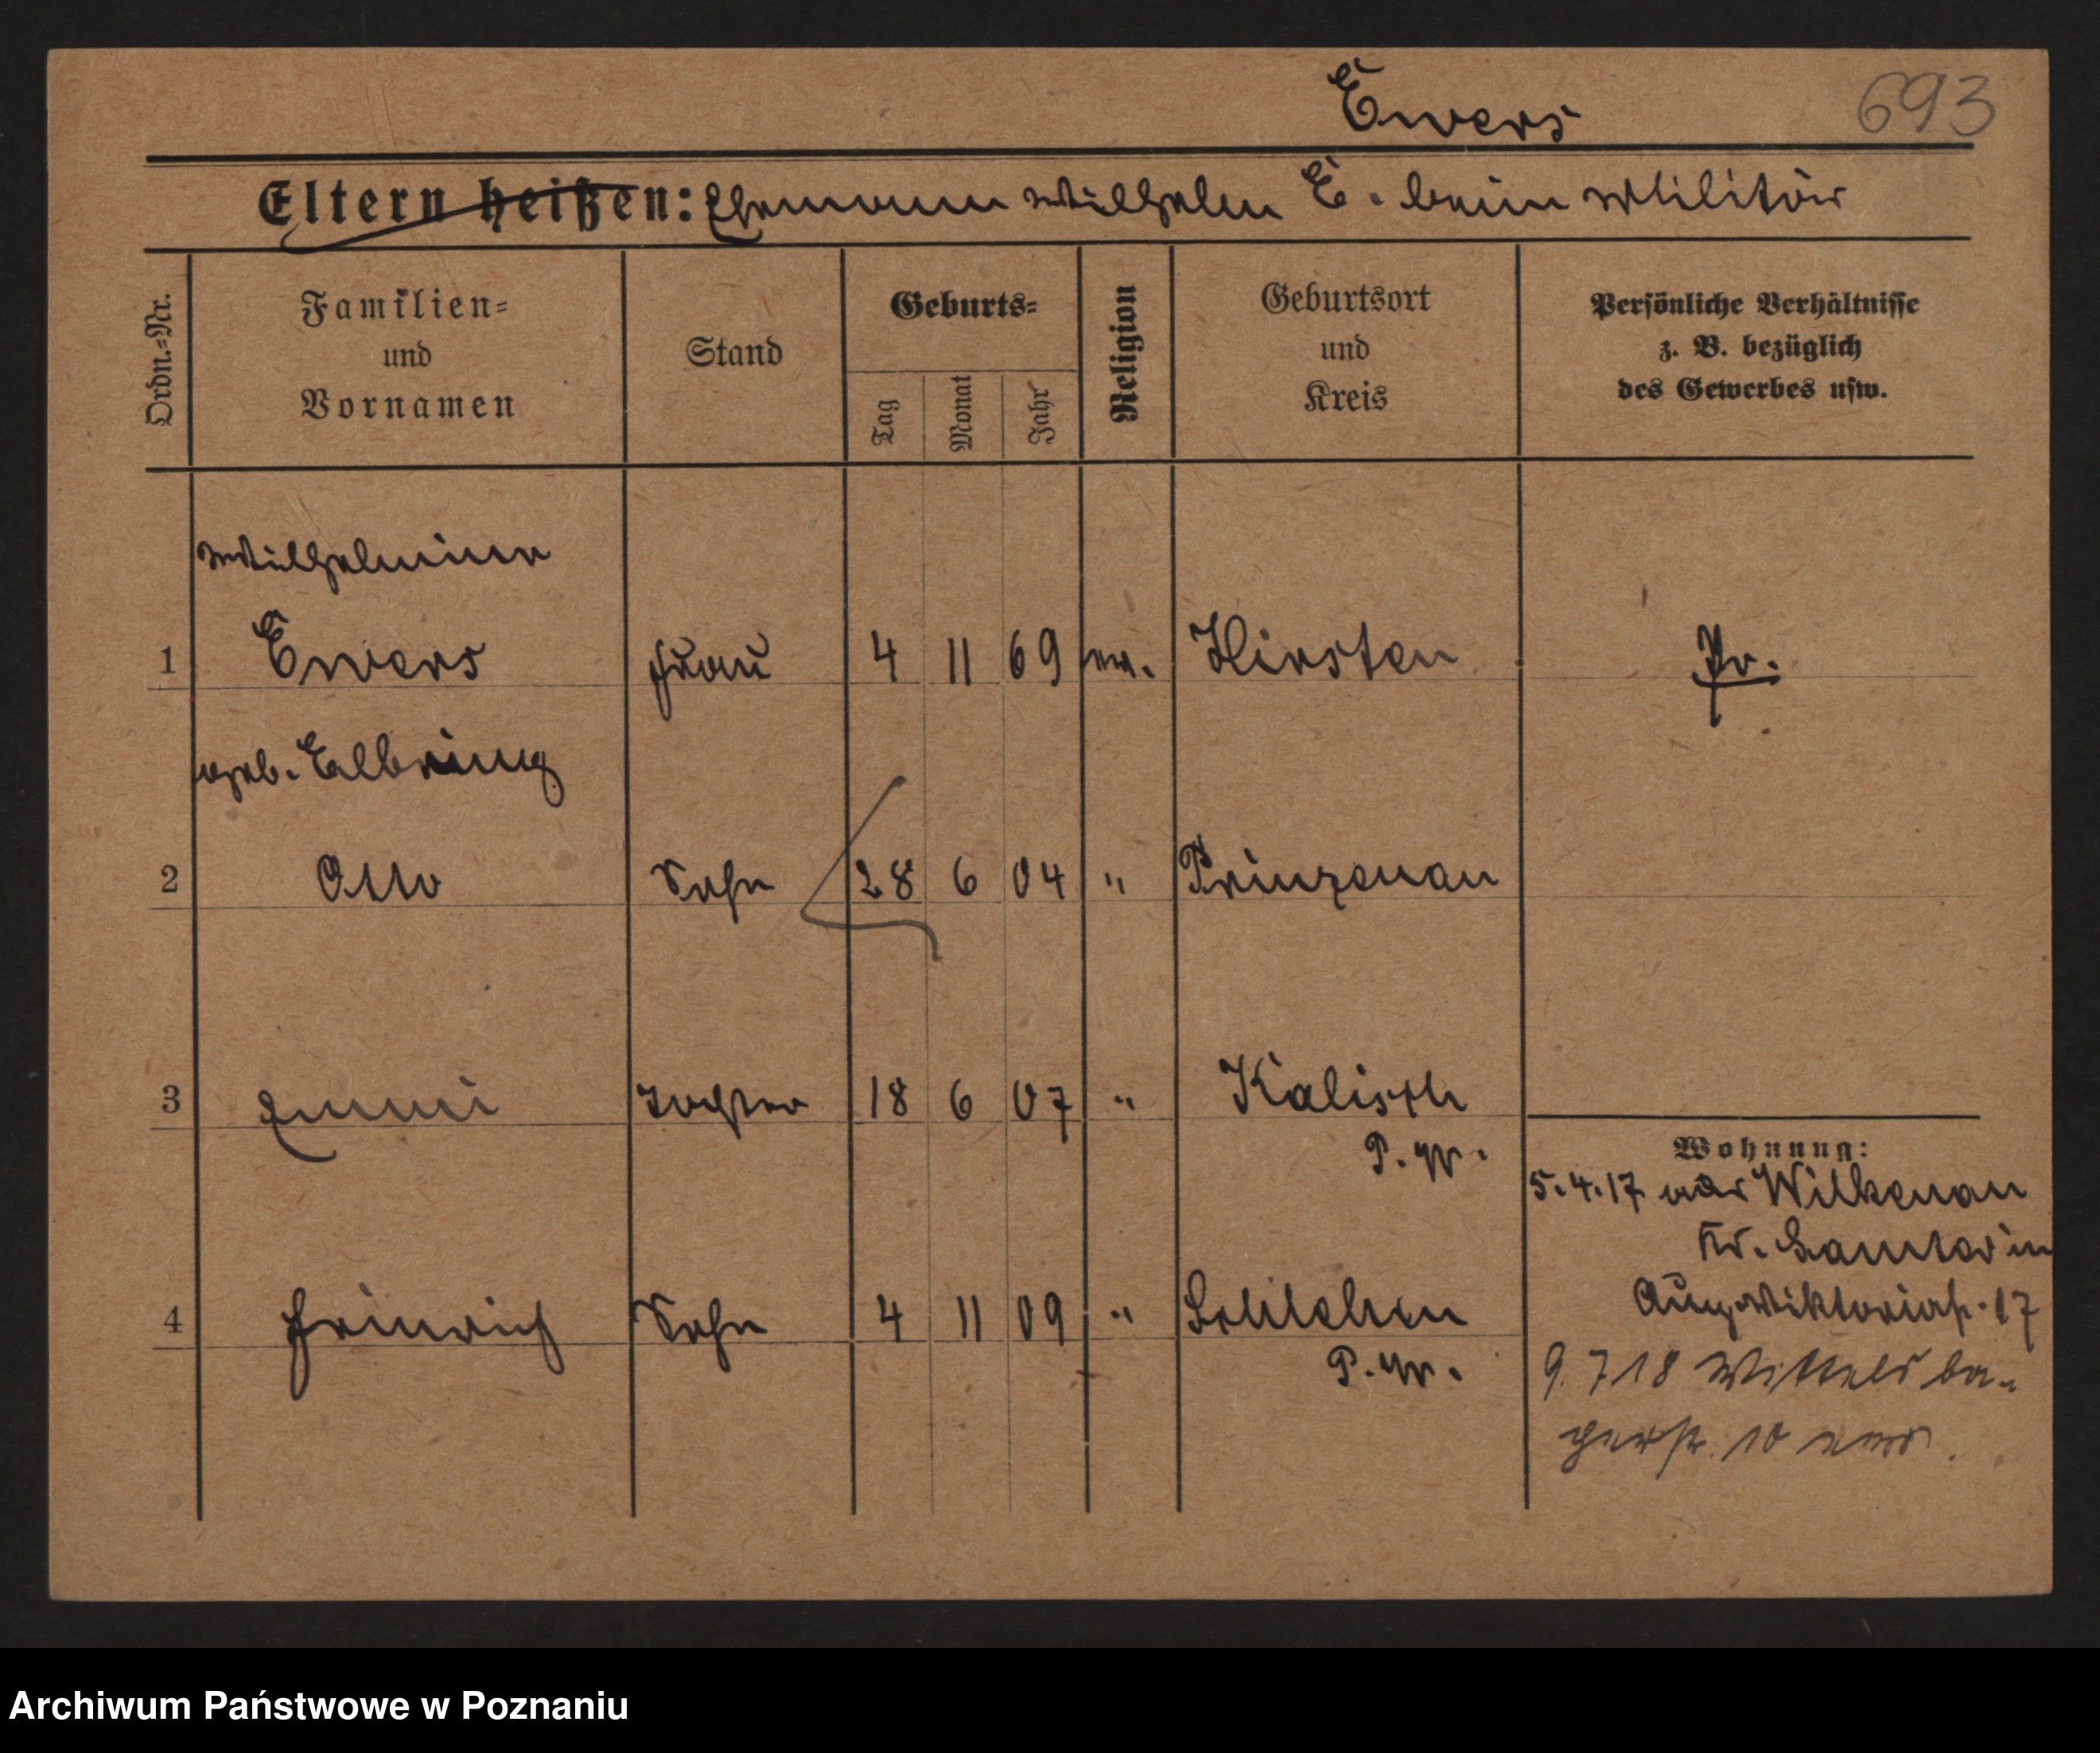 Ewers
693
Eltern heißen: Ehemann Wilhelm E. beim Militär
Ordn.-Nr.
Familien-
und
Vornamen
Stand
Geburts-
Tag
Monat
Jahr
Religion
Geburtsort
und
Kreis
Persönliche Verhältnisse
z. B. bezüglich
des Gewerbes usw.
Wilhelmine
1 Ewers Frau 4 11 69 ev. Hirsten Pr.
geb. Elbring
2 Otto Sohn 28 6 04 " Prinzenau
3 Emmi Tochter 18 6 07 "
P. W.
Wohnung:
5.4.17 aus Wilkenau
Kr. Samter in
Aug. Viktoriastr. 17
4 Heinrich Sohn 4 11 09 "
P. W.
9.7 18 Wittelsba-
cherstr. 10
Archiwum Państwowe w Poznaniu